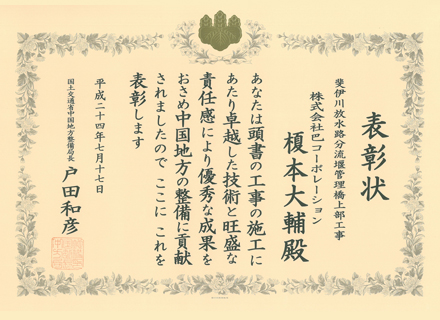 表彰状
斐伊川放水路分流堰管理橋上部工事
株式会社巴コーポレーション
榎本大輔殿
あなたは頭書の工事の施工に
あたり卓越した技術と旺盛な
責任感により優秀な成果を
おさめ中国地方の整備に貢献
されましたので ここに これを
表彰します
平成二十四年七月十七日
国土交通省中国地方整備局長 戸田和彦